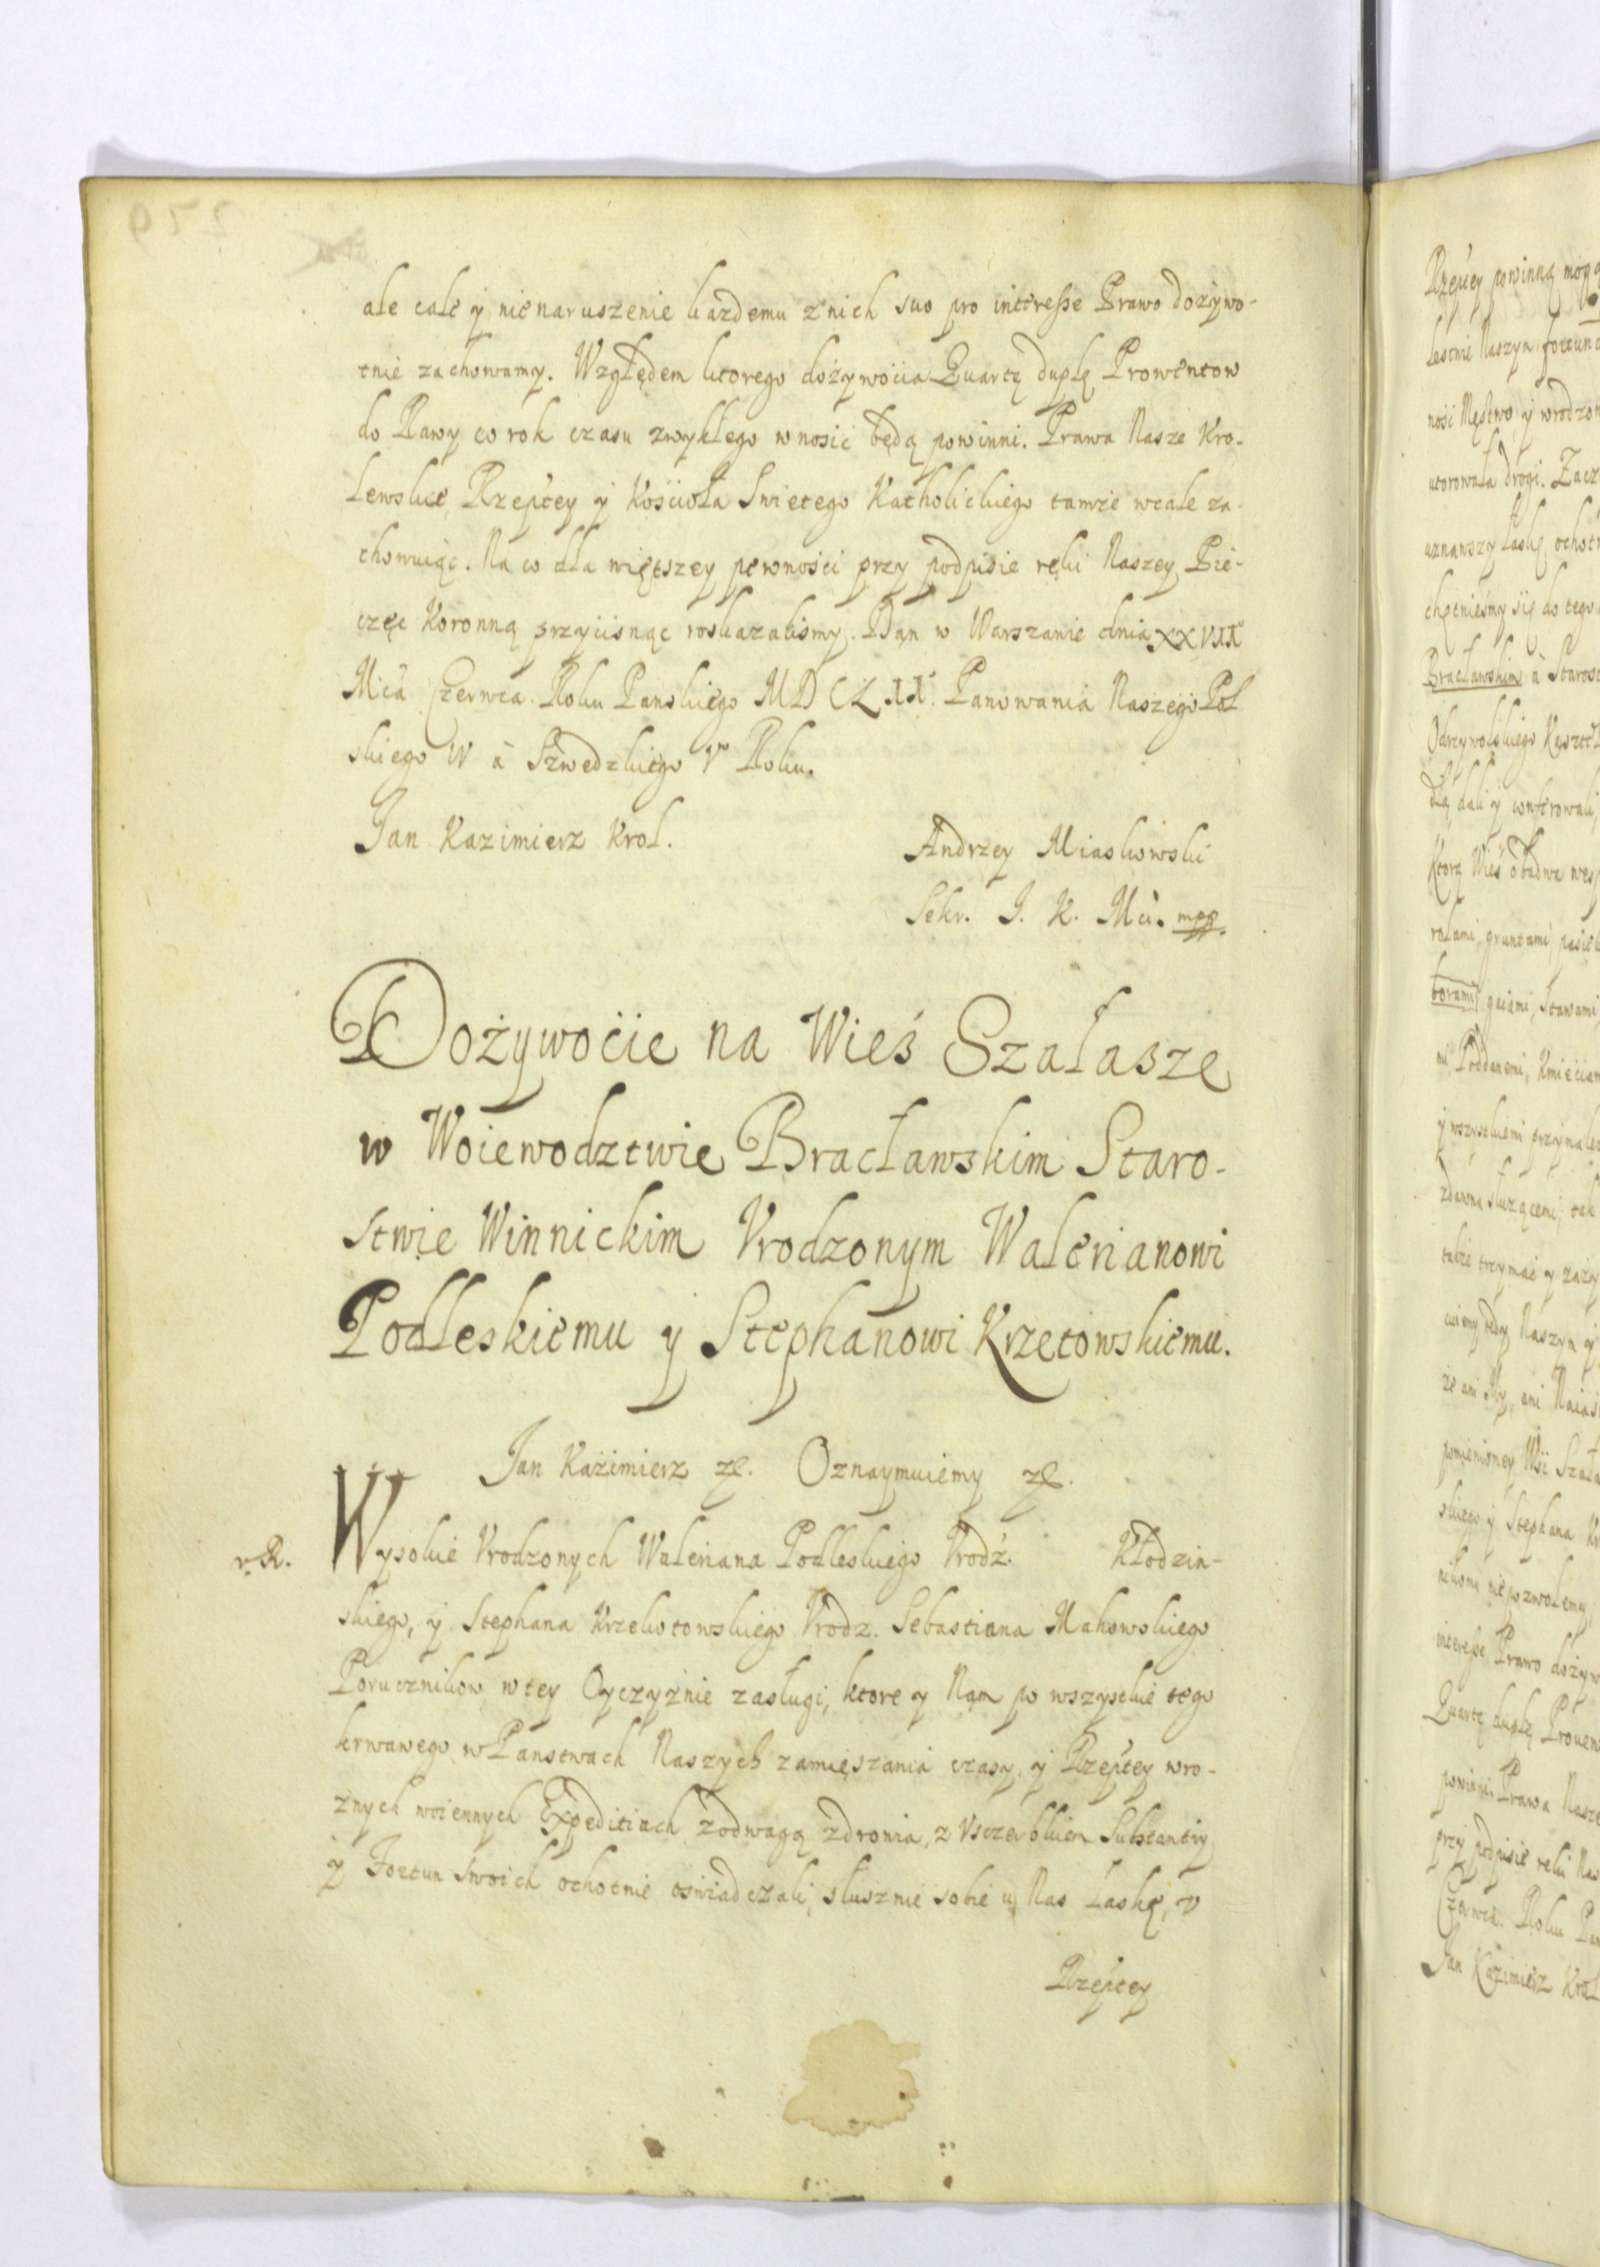 ale całe y nienaruszenie każdemu z nich suo pro interesse Prawo dożywo-
tnie zachowamy. Względem ktorego dożywocia Quartę duplę Prowentow
do Rawy co rok czasu zwykłego wnosić będą powinni. Prawa Nasze Kro-
lewskie, Rzeptey y Kościoła Swietego Katholickiego tamże wcale za-
chowuiąc. Na co dla większey pewności przy podpisie ręki Naszey Pie-
częc Koronną przycisnąc roskazalismy. Dan w Warszawie dnia XXVII
Mca Czerwca Roku Panskiego MDCLII. Panowania Naszego Pol
skiego IV a Szwedzkiego V Roku.
Jan Kazimierz Krol.
Andrzey Miaskowski
Sekr. J. K. Mci. mpp.
Dożywocie na Wieś Szałasze
w Woiewodztwie Bracławskim Staro-
stwie Winnickim Vrodzonym Walerianowi
Podleskiemu y Stephanowi Krzetowskiemu.
Jan Kazimierz etc. Oznaymuiemy etc.
r. R.
Wysokie Vrodzonych Waleriana Podleskiego Vrodz. Kłodzin-
skiego, y Stephana Krzekotowskiego Vrodz. Sebastiana Makowskiego
Porucznikow w tey Oyczyznie zasługi, ktore y Nam po wszystkie tego
krwawego w Panstwach Naszych zamięszania czasy, y Rzeptey w ro-
znych woiennych Expeditiach z odwagą zdrowia, z vszczerbkiem Substantiy
y Fortun swoich ochotnie oswiadczali, słusznie sobie u Nas Łaskę, v
Rzeptey
Rzeptey powinną mogą
nośc Męstwo y wrodzon
utorowała drogi. Zacz
uznawszy łaskę ochotn
chętnieśmy się do tego
Bracławskim a Starost
dali y conferowali,
Ktorą Wieś obadwa wesp
rolami, gruntami,
borami, gaiami, stawami,
Poddanemi, Kmieciam
y wszystkiemi przynależ
zdawna służącemi, tak
także trzymać y zazy
Naszym y
że ani My, ani Naias
pomienioney Wsi Szała
skiego y Stephana Kr
nikomu nie pozwolemy,
interesse Prawo dożyw
Quartę duplę Prouen
powinni. Prawa Nasze
przy podpisie ręki Nas
Czerwca. Roku Pan
Jan Kazimierz Krol